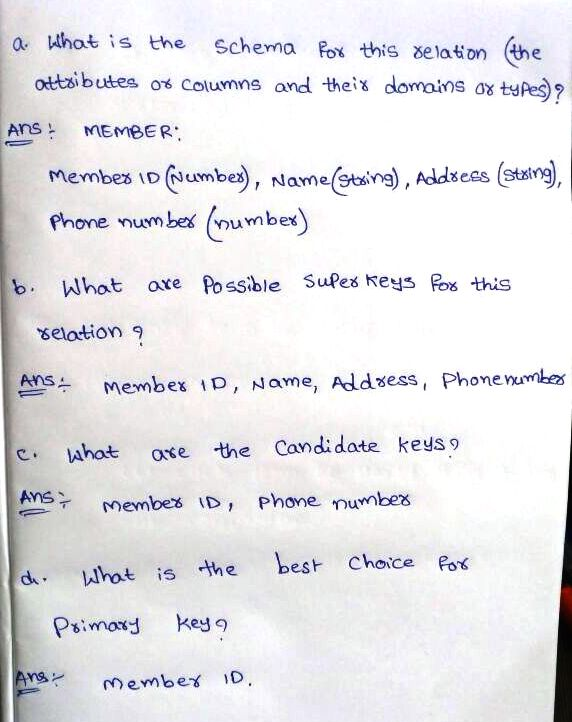 a. What is the Schema for this relation (the
attributes or columns and their domains or types)?
Ans: MEMBER:
Member ID (Number), Name (String), Address (String),
Phone number (number)
b. What are Possible Super keys for this
relation?
Ans: Member ID, Name, Address, Phonenumber
c. What are the Candidate keys?
Ans: Member ID, Phone number
d. What is the best Choice for
Primary key?
Ans: Member ID.